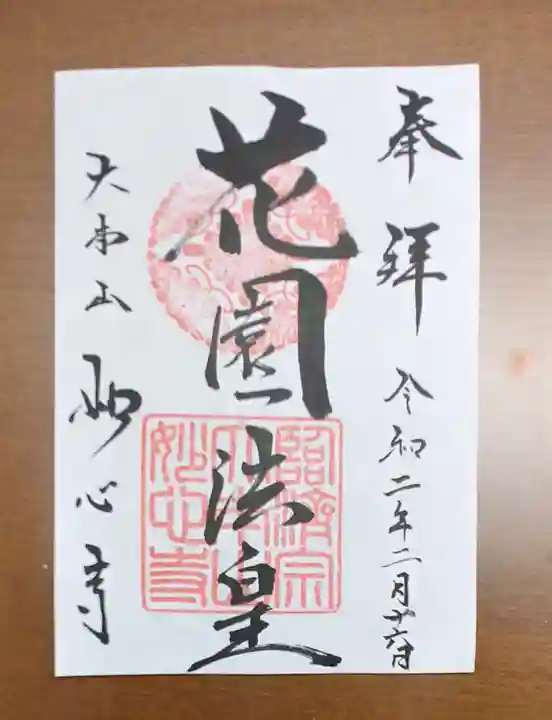 奉拝 令和二年二月廿六日
花園法皇
大本山 妙心寺
臨済宗
大本山
妙心寺